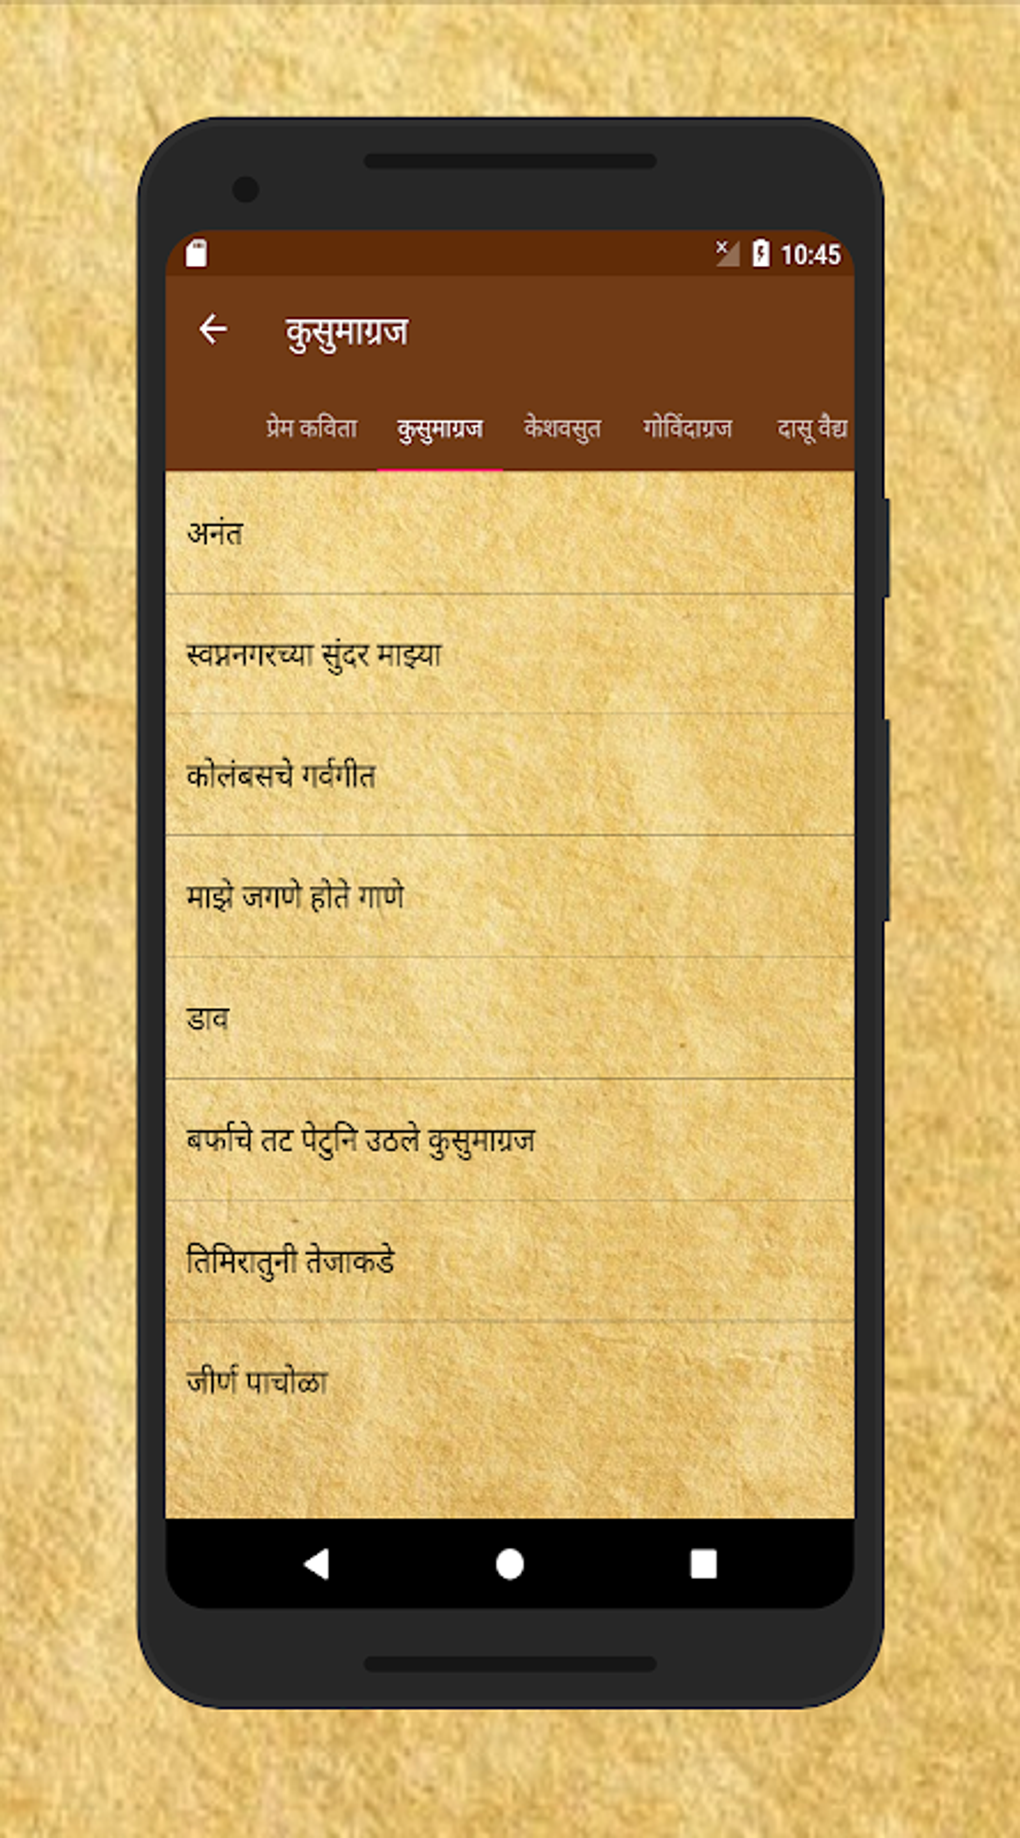 10:45
कुसुमाग्रज
प्रेम कविता कुसुमाग्रज केशवसुत गोविंदाग्रज दासू वैद्य
अनंत
स्वप्ननगरच्या सुंदर माझ्या
कोलंबसचे गर्वगीत
माझे जगणे होते गाणे
डाव
बर्फाचे तट पेटुनि उठले कुसुमाग्रज
तिमिरातुनी तेजाकडे
जीर्ण पाचोळा